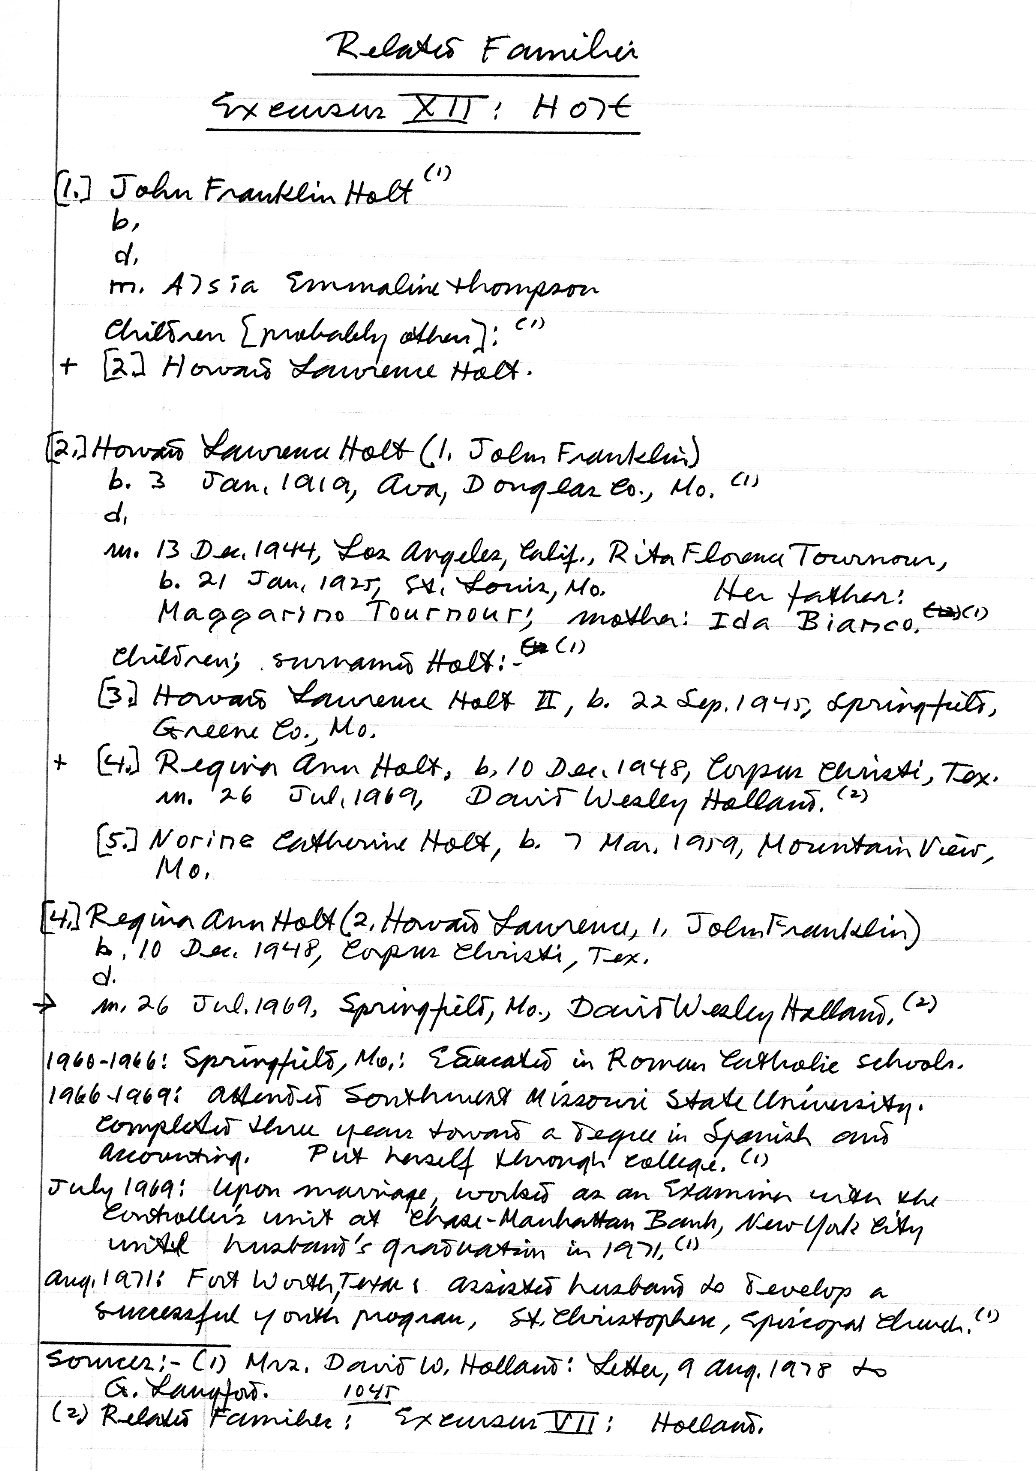 Related Families
Excursus XII: Holt
[1.] John Franklin Holt (1)
b.
d.
m. Alsia Emmaline Thompson
Children [probably others]: (1)
+ [2.] Howard Lawrence Holt.
[2.] Howard Lawrence Holt (1. John Franklin)
b. 3 Jan. 1919, Ava, Douglas Co., Mo. (1)
d.
m. 13 Dec. 1944, Los Angeles, Calif., Rita Florence Tournour,
b. 21 Jan. 1925, St. Louis, Mo. Her father:
Maggarino Tournour; mother: Ida Bianco. (1)
Children; surnamed Holt:- (1)
[3.] Howard Lawrence Holt II, b. 22 Sep. 1945, Springfield,
Greene Co., Mo.
+ [4.] Regina Ann Holt, b. 10 Dec. 1948, Corpus Christi, Tex.
m. 26 Jul. 1969, David Wesley Holland. (2)
[5.] Norine Catherine Holt, b. 7 Mar. 1959, Mountain View,
Mo.
[4.] Regina Ann Holt (2. Howard Lawrence, 1. John Franklin)
b. 10 Dec. 1948, Corpus Christi, Tex.
d.
→ m. 26 Jul. 1969, Springfield, Mo., David Wesley Holland. (2)
1960-1966: Springfield, Mo.: Educated in Roman Catholic schools.
1966-1969: Attended Southwest Missouri State University.
Completed three years toward a degree in Spanish and
Accounting. Put herself through college. (1)
July 1969: Upon marriage, worked as an Examiner with the
Controller's unit at Chase-Manhattan Bank, New York City
until husband's graduation in 1971. (1)
Aug. 1971: Fort Worth, Texas: assisted husband to develop a
successful youth program, St. Christopher, Episcopal Church. (1)
Sources:- (1) Mrs. David W. Holland: Letter, 9 Aug. 1978 to
G. Langford. 1045
(2) Related Families: Excursus VII: Holland.